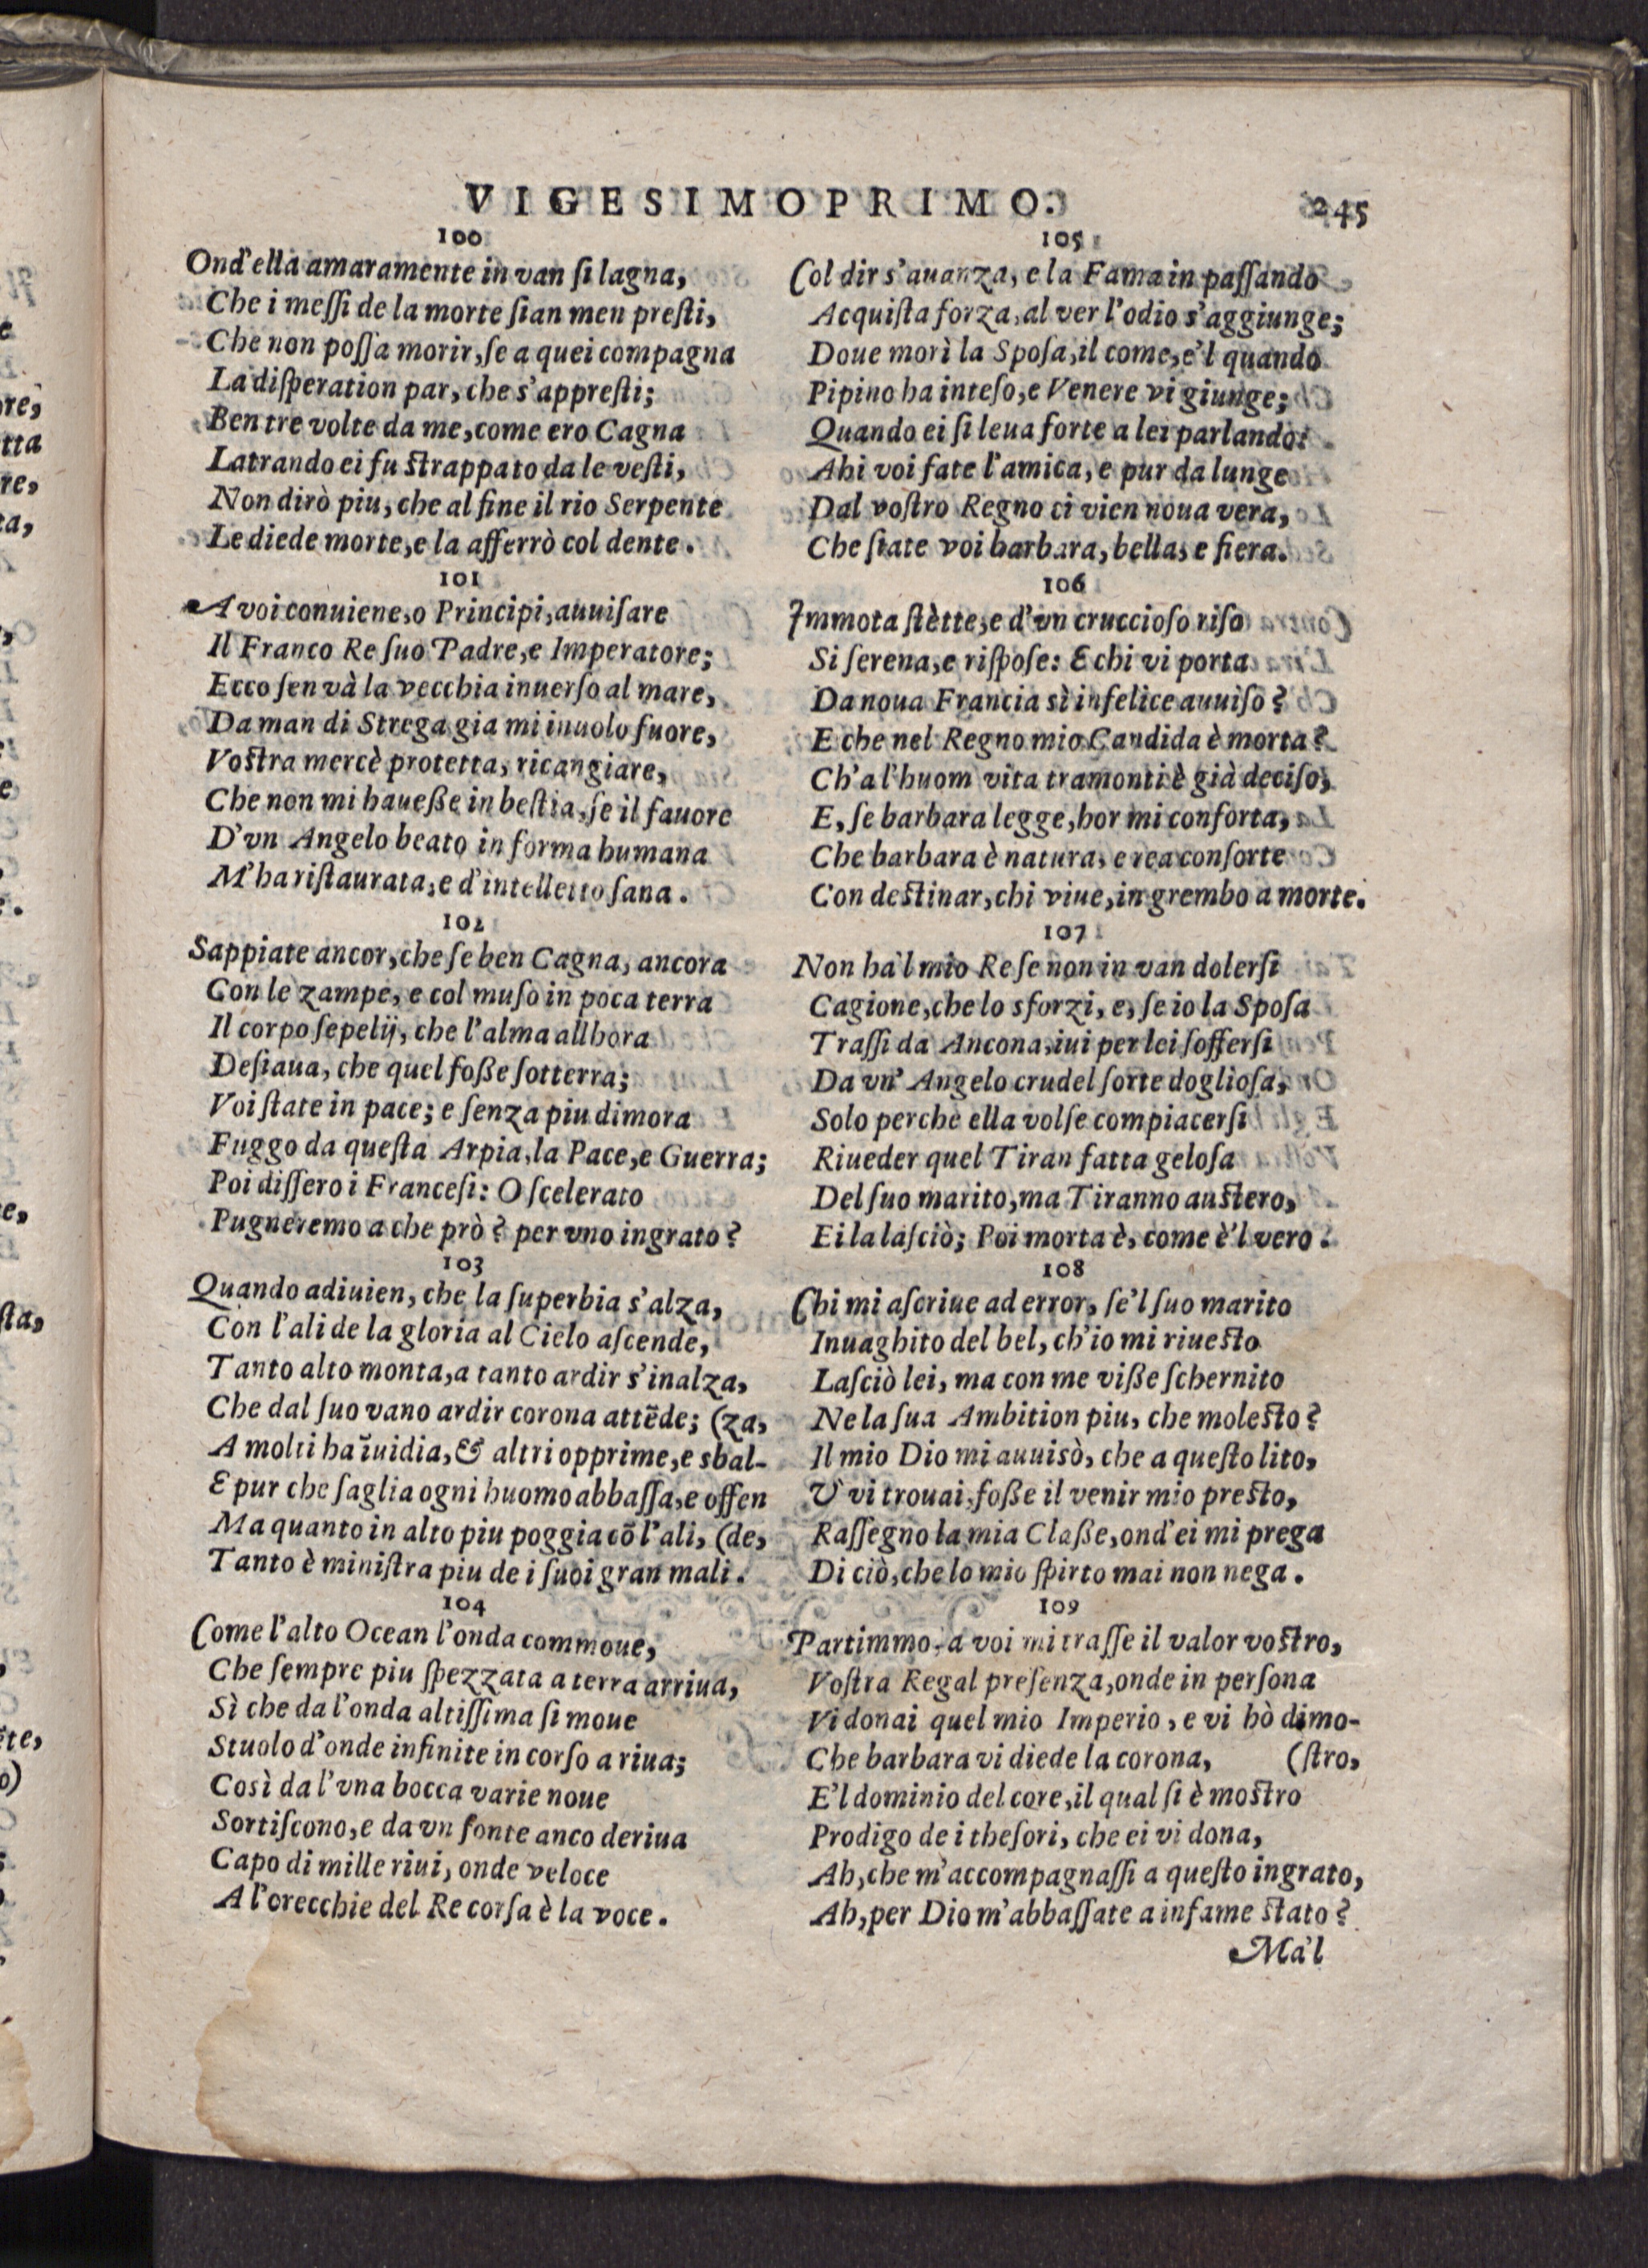 VIGESIMOPRIMO. 245
100
Ond'ella amaramente in van ſi lagna,
Che i meſſi de la morte ſian men preſti,
Che non poſſa morir, ſe a quei compagna
La diſperation par, che s'appreſti;
Ben tre volte da me, come ero Cagna
Latrando ei fu strappato da le veſti,
Non dirò piu, che al fine il rio Serpente
Le diede morte, e la afferrò col dente.
101
A voi conuiene, o Principi, auuiſare
Il Franco Re ſuo Padre, e Imperatore;
Ecco ſen và la vecchia inuerſo al mare,
Da man di Strega gia mi inuolo fuore,
Vostra mercè protetta, ricangiare,
Che non mi haueße in beſtia, ſe il fauore
D'vn Angelo beato in forma humana
M'ha riſtaurata, e d'intelletto ſana.
102
Sappiate ancor, che ſe ben Cagna, ancora
Con le zampe, e col muſo in poca terra
Il corpo ſepelij, che l'alma allhora
Deſiaua, che quel foße ſotterra;
Voi ſtate in pace; e ſenza piu dimora
Fuggo da queſta Arpia, la Pace, e Guerra;
Poi diſſero i Franceſi: O ſcelerato
Pugneremo a che prò? per vno ingrato?
103
Quando adiuien, che la ſuperbia s'alza,
Con l'ali de la gloria al Cielo aſcende,
Tanto alto monta, a tanto ardir s'inalza,
Che dal ſuo vano ardir corona attẽde; (za,
A molti ha ĩuidia, & altri opprime, e sbal-
E pur che ſaglia ogni huomo abbaſſa, e offen
Ma quanto in alto piu poggia cõ l'ali, (de,
Tanto è miniſtra piu de i ſuoi gran mali.
104
Come l'alto Ocean l'onda commoue,
Che ſempre piu ſpezzata a terra arriua,
Sì che da l'onda altiſſima ſi moue
Stuolo d'onde infinite in corſo a riua;
Così da l'vna bocca varie noue
Sortiſcono, e da vn fonte anco deriua
Capo di mille riui, onde veloce
A l'orecchie del Re corſa è la voce.
105
Col dir s'auanza, e la Fama in paſſando
Acquiſta forza, al ver l'odio s'aggiunge;
Doue morì la Spoſa, il come, e'l quando
Pipino ha inteſo, e Venere vi giunge;
Quando ei ſi leua forte a lei parlando:
Ahi voi fate l'amica, e pur da lunge
Dal voſtro Regno ci vien noua vera,
Che ſiate voi barbara, bella, e fiera.
106
Immota ſtètte, e d'vn cruccioſo riſo
Si ſerena, e riſpoſe: E chi vi porta
Da noua Francia sì infelice auuiſo?
E che nel Regno mio Candida è morta?
Ch'a l'huom vita tramonti è già deciſo,
E, ſe barbara legge, hor mi conforta,
Che barbara è natura, e rea conſorte
Con destinar, chi viue, in grembo a morte.
107
Non ha'l mio Re ſe non in van dolerſi
Cagione, che lo sforzi, e, ſe io la Spoſa
Traſſi da Ancona, iui per lei ſofferſi
Da vn' Angelo crudel ſorte doglioſa,
Solo perche ella volſe compiacerſi
Riueder quel Tiran fatta geloſa
Del ſuo marito, ma Tiranno austero,
Ei la laſciò; Poi morta è, come è'l vero.
108
Chi mi aſcriue ad error, ſe'l ſuo marito
Inuaghito del bel, ch'io mi riuesto
Laſciò lei, ma con me viße ſchernito
Ne la ſua Ambition piu, che molesto?
Il mio Dio mi auuisò, che a queſto lito,
V' vi trouai, foße il venir mio presto,
Raſſegno la mia Claße, ond'ei mi prega
Di ciò, che lo mio ſpirto mai non nega.
109
Partimmo, a voi mi traſſe il valor vostro,
Voſtra Regal preſenza, onde in perſona
Vi donai quel mio Imperio, e vi hò dimo-
Che barbara vi diede la corona, (ſtro,
E'l dominio del core, il qual ſi è mostro
Prodigo de i theſori, che ei vi dona,
Ah, che m'accompagnaſſi a queſto ingrato,
Ah, per Dio m'abbaſſate a infame stato?
Ma'l